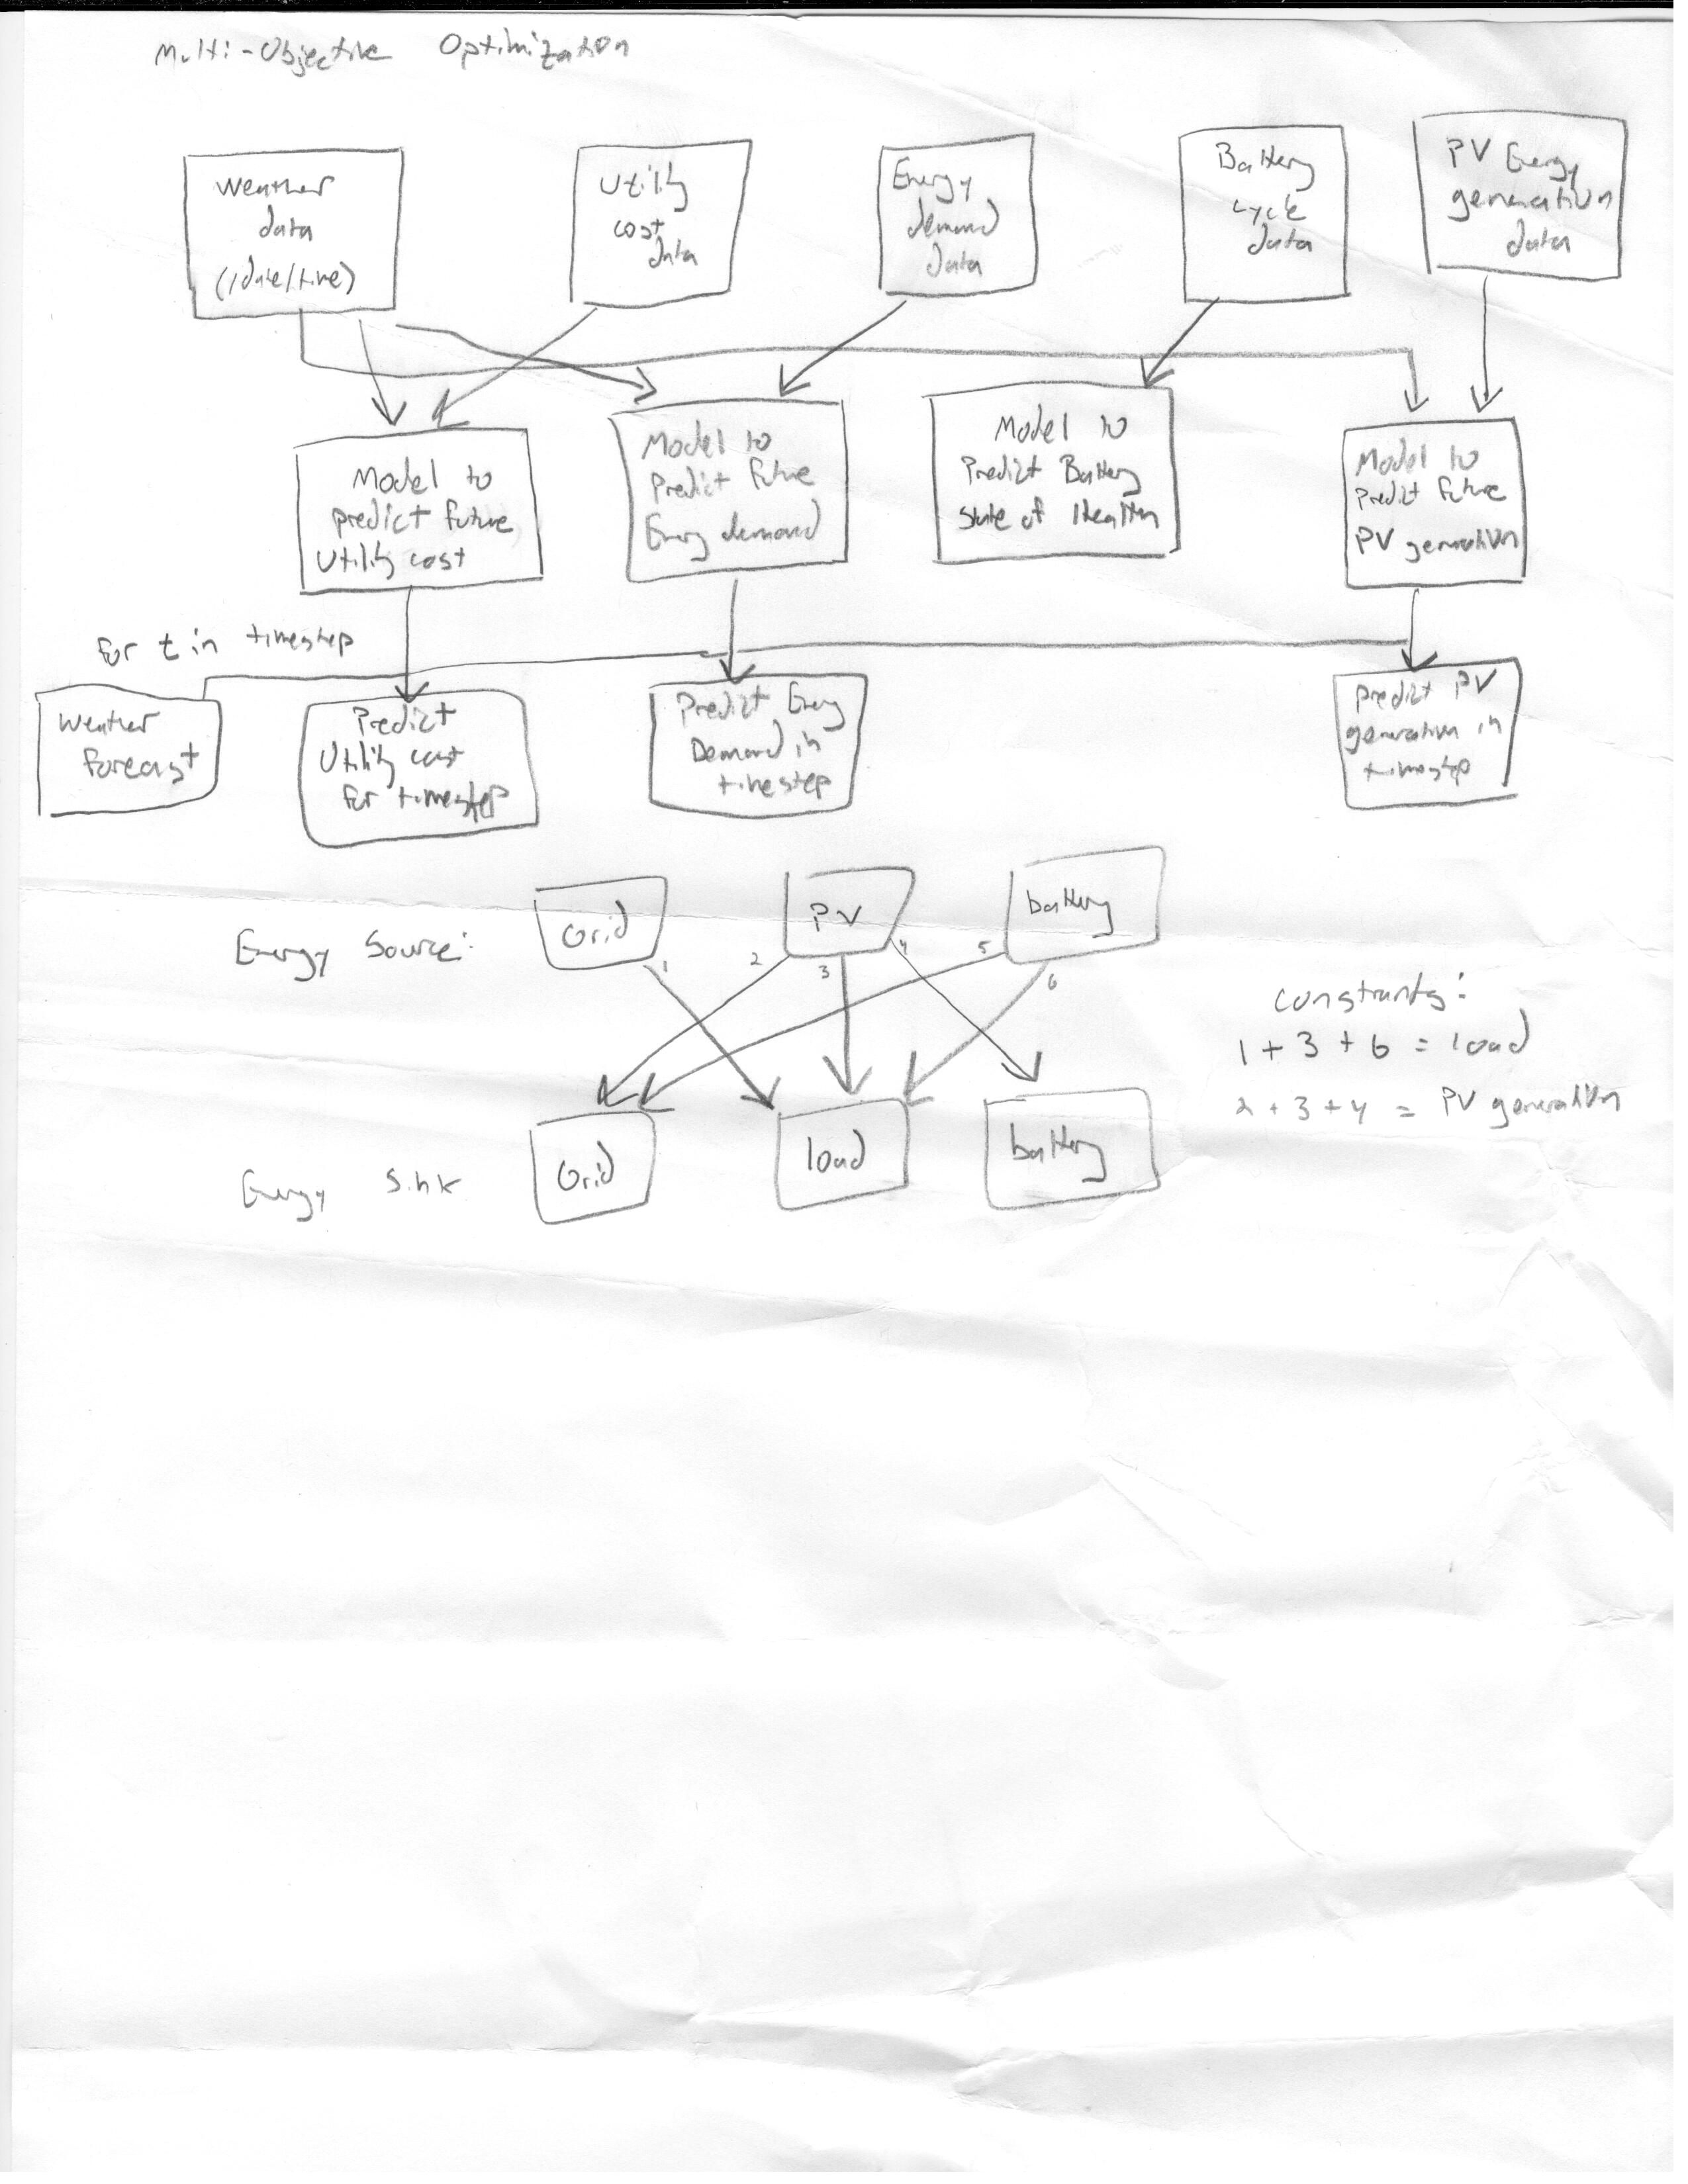 Multi-Objective Optimization
Weather
data
(/date/time)
Utility
cost
data
Energy
demand
data
Battery
cycle
data
PV Energy
generation
data
Model to
predict future
Utility cost
Model to
Predict future
Energy demand
Model to
Predict Battery
State of Health
Model to
Predict future
PV generation
for t in timestep
Weather
forecast
Predict
Utility cost
for timestep
Predict Energy
Demand in
timestep
Predict PV
generation in
timestep
Energy Source:
Grid
PV
battery
1
2
3
4
5
6
Constraints:
1 + 3 + 6 = load
2 + 3 + 4 = PV generation
Energy Sink
Grid
load
battery